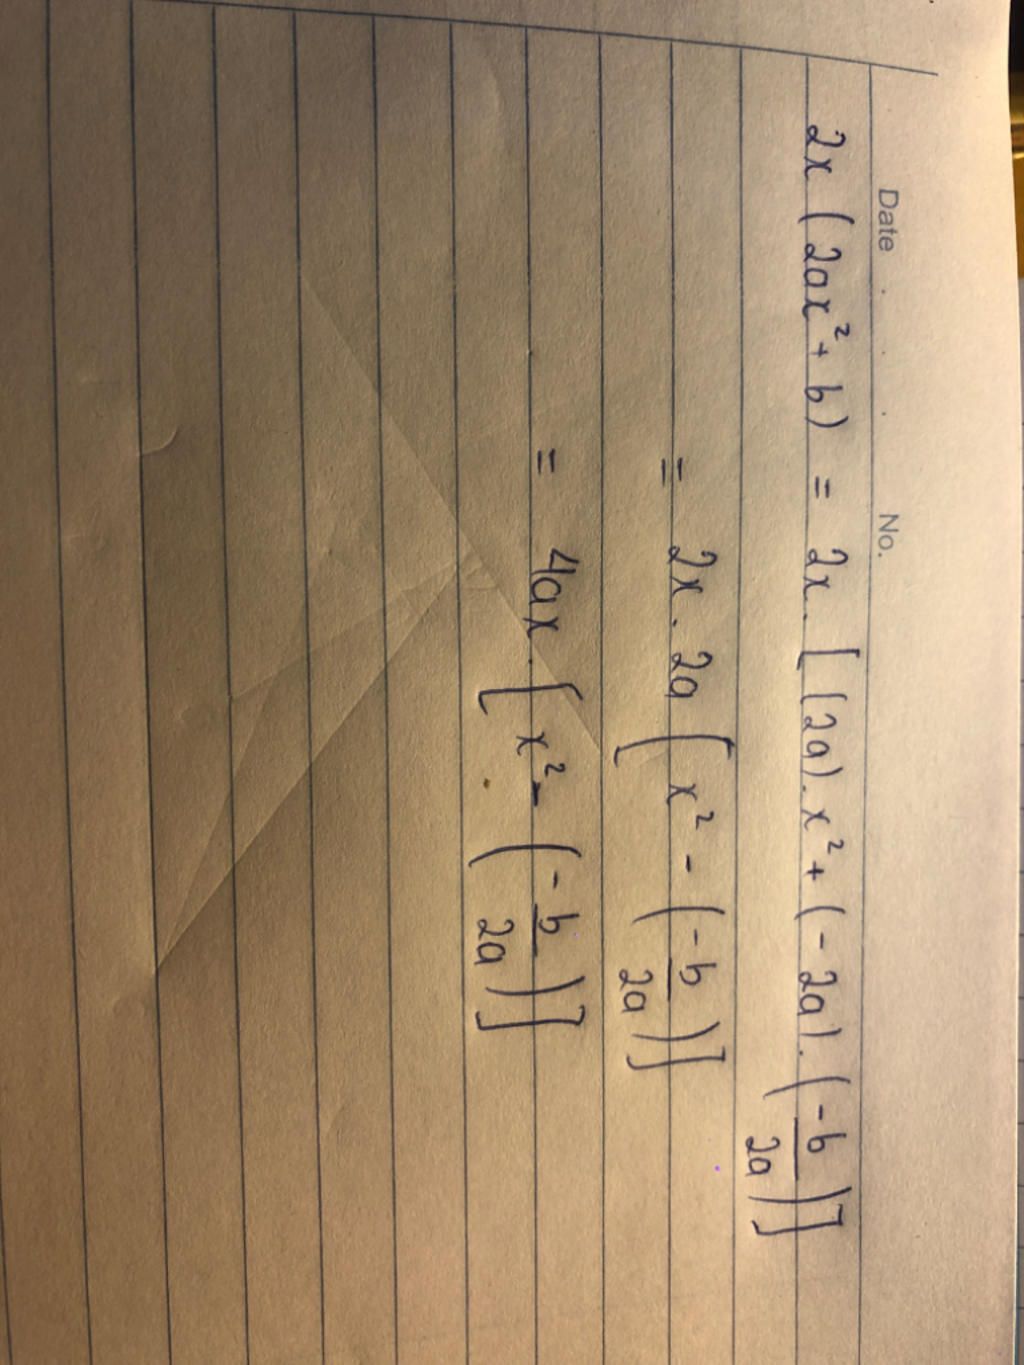 Date . . . No.
2x (2ax² + b) = 2x. [(2a).x² + (-2a).(-b/2a)]
= 2x.2a [x² - (-b/2a)]
= 4ax.[x² - (-b/2a)]